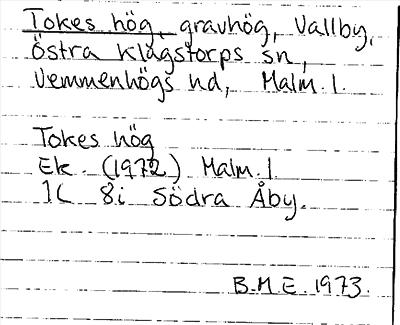 Tokes hög, gravhög, Vallby,
Östra Klagstorps sn,
Vemmenhögs hd, Malm. l.
Tokes hög
Ek. (1972) Malm. l
1C 8i Södra Åby.
B.M.E. 1973.